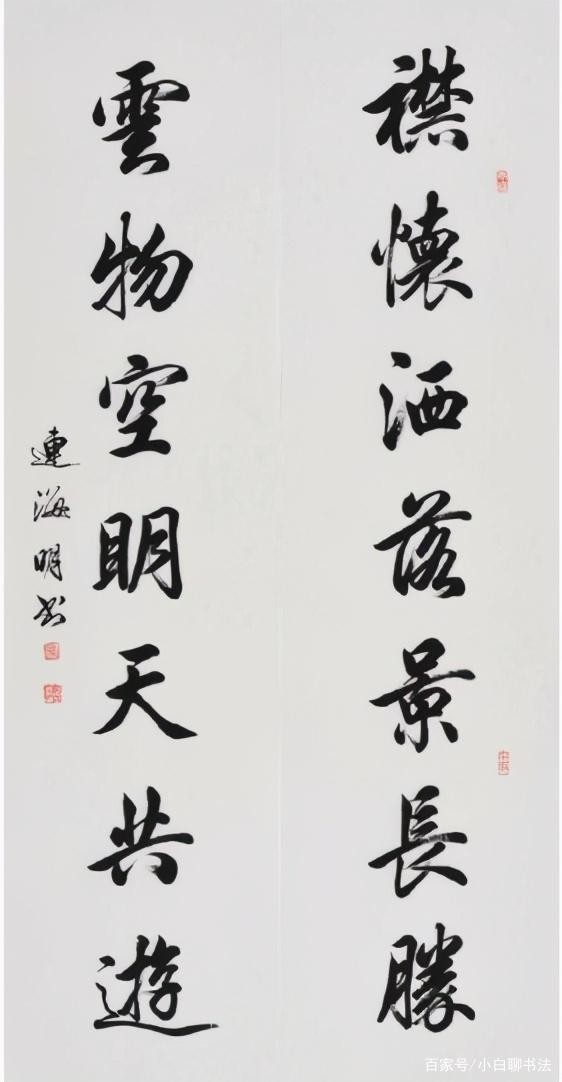 襟懷洒落景長勝
雲物空明天共遊
連海明書
百家号/小白聊书法